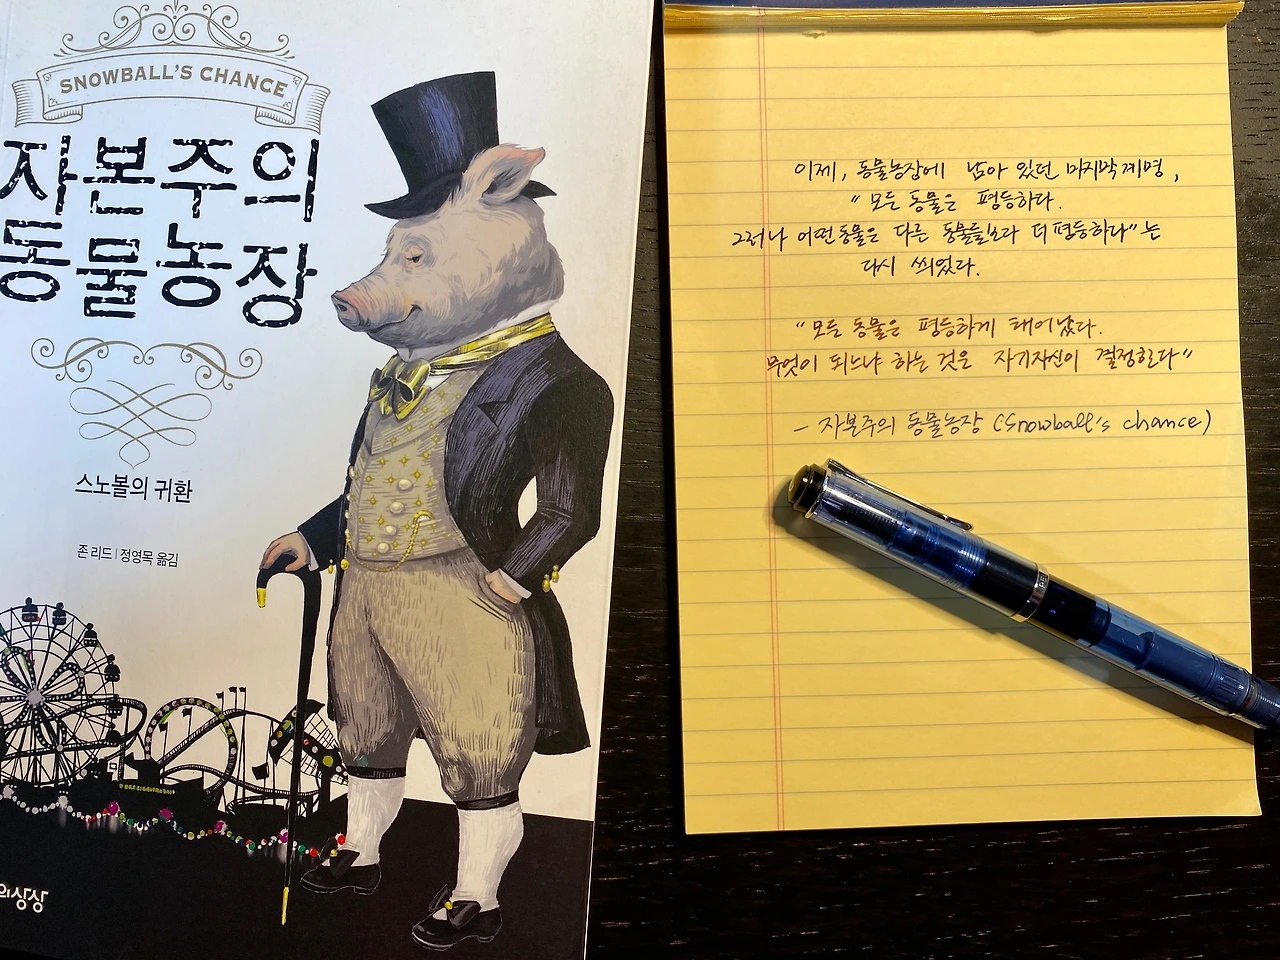 SNOWBALL'S CHANCE
자본주의
동물농장
스노볼의 귀환
존 리드 | 정영목 옮김
의상상
이제, 동물농장에 남아 있던 마지막 계명,
"모든 동물은 평등하다.
그러나 어떤 동물은 다른 동물들보다 더 평등하다"는
다시 씌었다.
"모든 동물은 평등하게 태어났다.
무엇이 되느냐 하는 것은 자기자신이 결정한다"
- 자본주의 동물농장 (Snowball's chance)